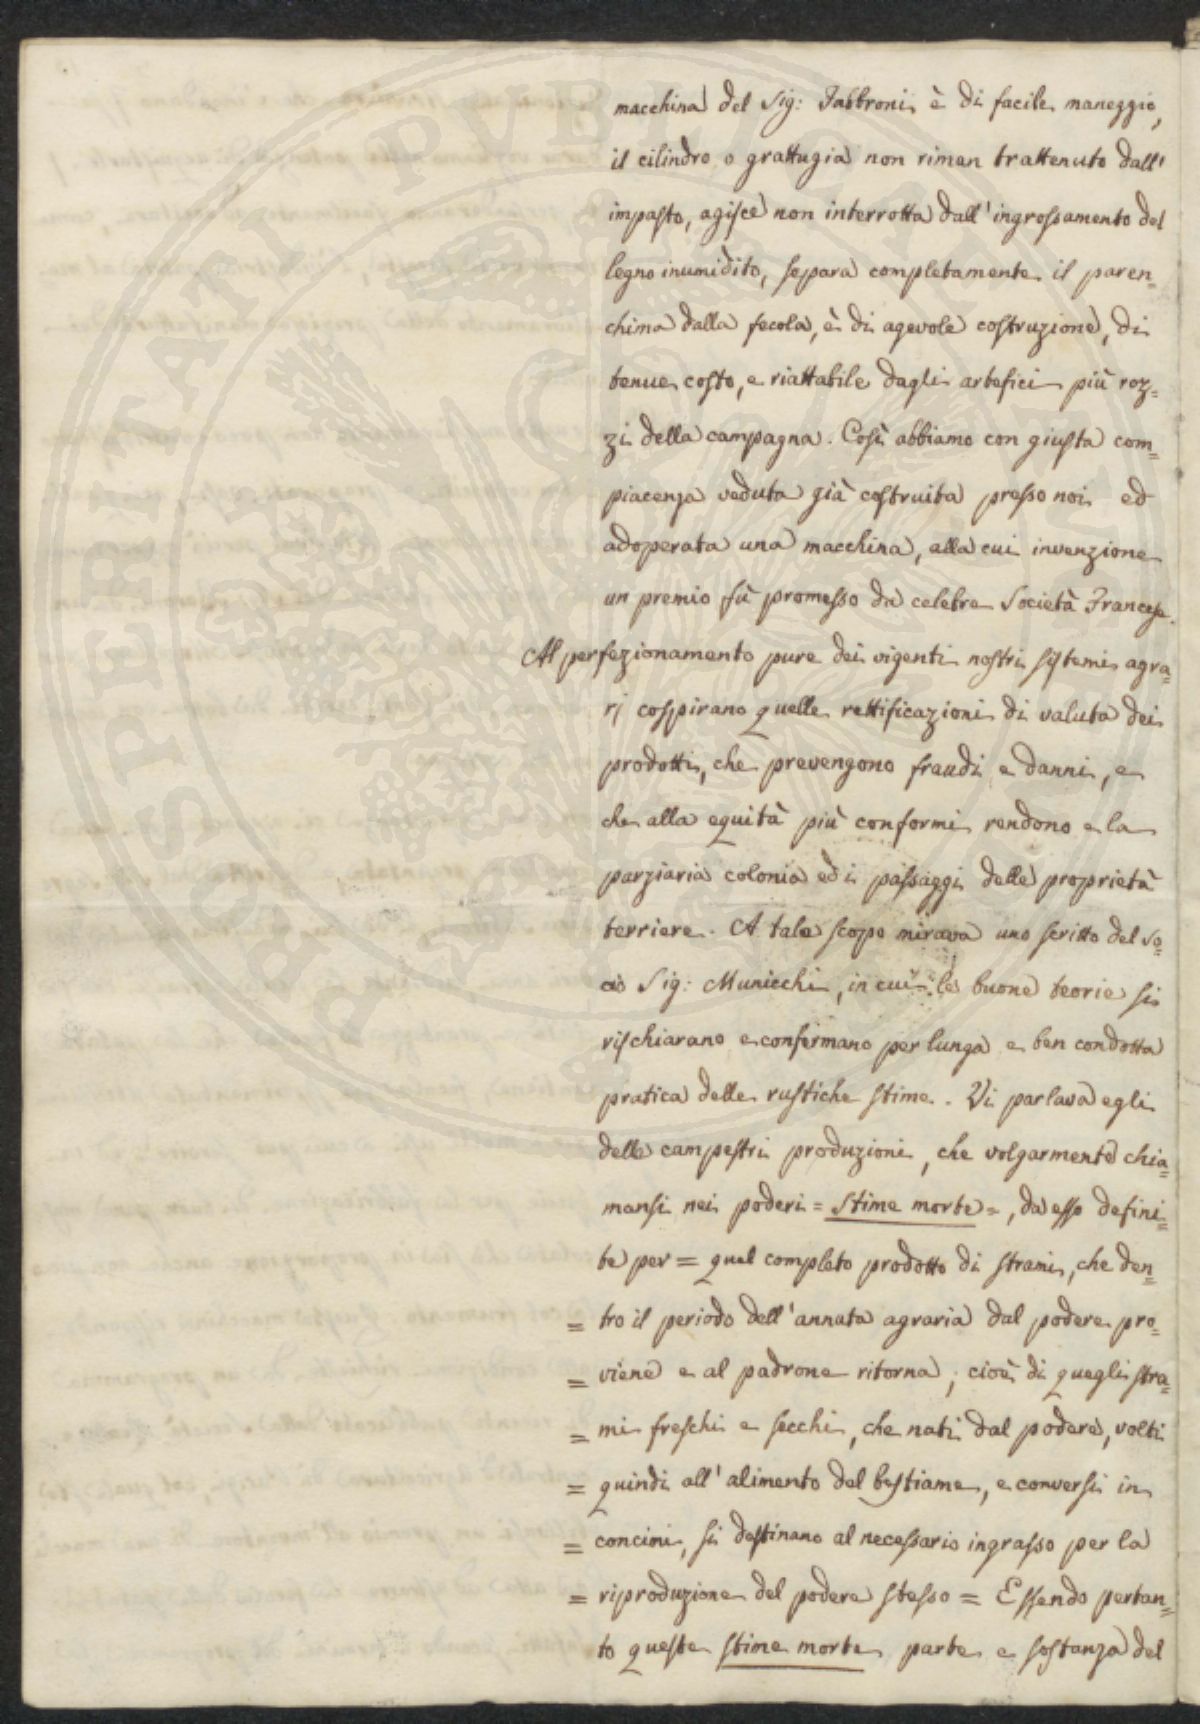 macchina del Sig: Fabbroni è di facile maneggio,
il cilindro o grattugia non riman trattenuto dall'
impasto, agisce non interrotta dall'ingrossamento del
legno inumidito, separa completamente il paren=
china dalla fecola, è di agevole costruzione, di
tenue costo, e riattabile dagli artefici più roz=
zi della campagna. Così abbiamo con giusta com=
piacenza veduta già costruita presso noi ed
adoperata una macchina, alla cui invenzione
un premio fù promesso da celebre Società Francese.
Al perfezionamento pure dei vigenti nostri sistemi agra=
rj cospirano quelle rettificazioni di valuta dei
prodotti, che prevengono fraudi e danni, e
che alla equità più conformi rendono e la
parziaria colonia ed i passaggi delle proprietà
terriere. A tale scopo mirava uno scritto del So=
cio Sig: Municchi, in cui le buone teorie si
rischiarano e confermano per lunga e ben condotta
pratica delle rustiche stime. Vi parlava egli
delle campestri produzioni, che volgarmente chia=
mansi nei poderi = Stime morte =, da esso defini=
te per = quel completo prodotto di strami, che den=
= tro il periodo dell'annata agraria dal podere pro=
= viene e al padrone ritorna; cioè di quegli stra=
= mi freschi e secchi, che nati dal podere, volti
= quindi all'alimento del bestiame, e conversi in
= concini, si destinano al necessario ingrasso per la
= riproduzione del podere stesso = Essendo pertan=
to queste stime morte parte e sostanza del
PROSPERITATI PVBLICAE